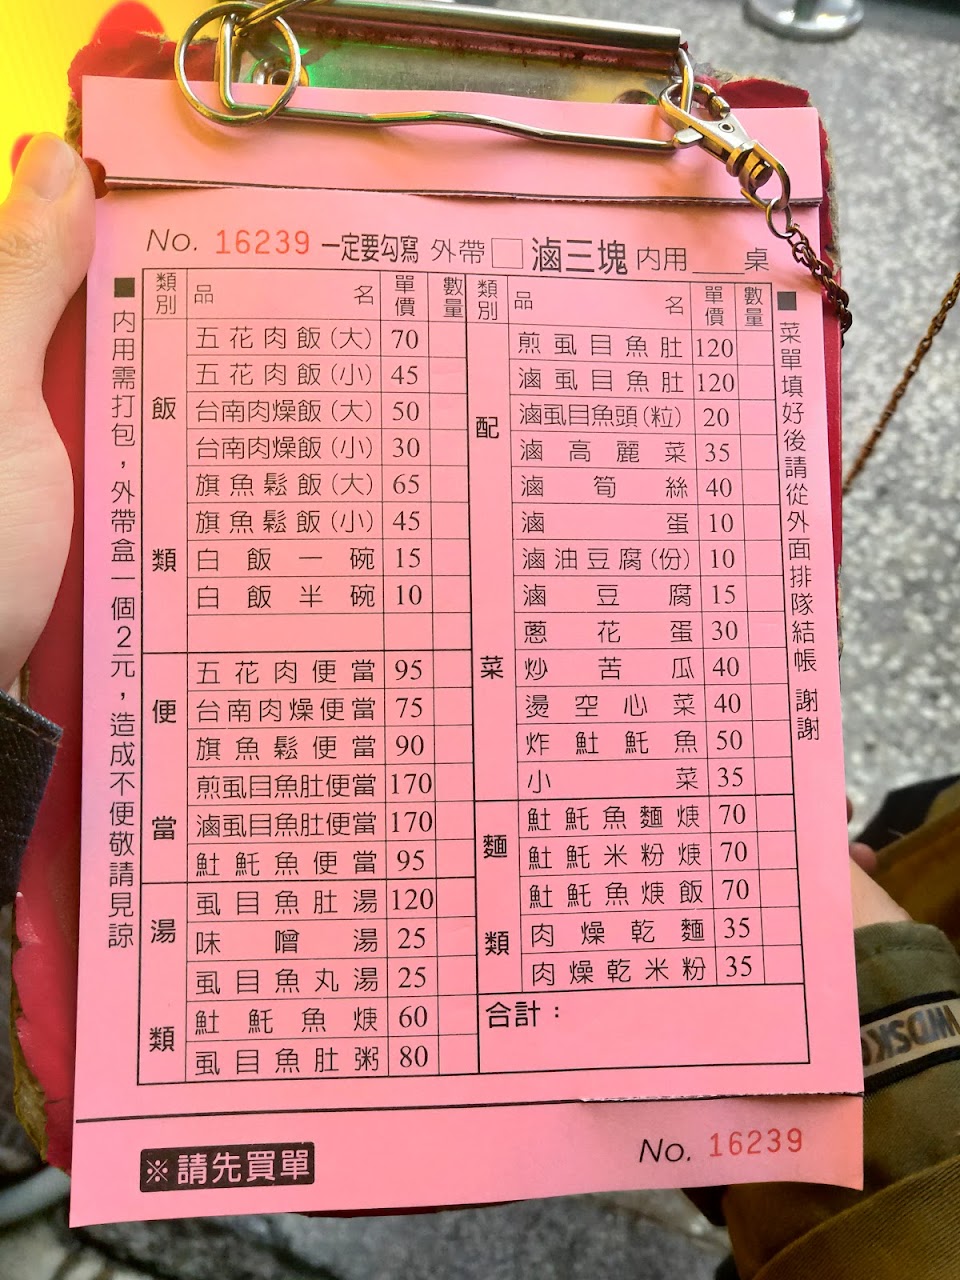 No. 16239 一定要勾寫 外帶□ 滷三塊 內用___桌
■內用需打包，外帶盒一個2元，造成不便敬請見諒
類別 品名 單價 數量
飯類
五花肉飯(大) 70
五花肉飯(小) 45
台南肉燥飯(大) 50
台南肉燥飯(小) 30
旗魚鬆飯(大) 65
旗魚鬆飯(小) 45
白飯一碗 15
白飯半碗 10
便當
五花肉便當 95
台南肉燥便當 75
旗魚鬆便當 90
煎虱目魚肚便當 170
滷虱目魚肚便當 170
魠魠魚便當 95
湯類
虱目魚肚湯 120
味噌湯 25
虱目魚丸湯 25
魠魠魚焿 60
虱目魚肚粥 80
類別 品名 單價 數量
配菜
煎虱目魚肚 120
滷虱目魚肚 120
滷虱目魚頭(粒) 20
滷高麗菜 35
滷筍絲 40
滷蛋 10
滷油豆腐(份) 10
滷豆腐 15
蔥花蛋 30
炒苦瓜 40
燙空心菜 40
炸魠魠魚 50
小菜 35
麵類
魠魠魚麵焿 70
魠魠米粉焿 70
魠魠魚焿飯 70
肉燥乾麵 35
肉燥乾米粉 35
合計：
■菜單填好後請從外面排隊結帳 謝謝
※請先買單
No. 16239